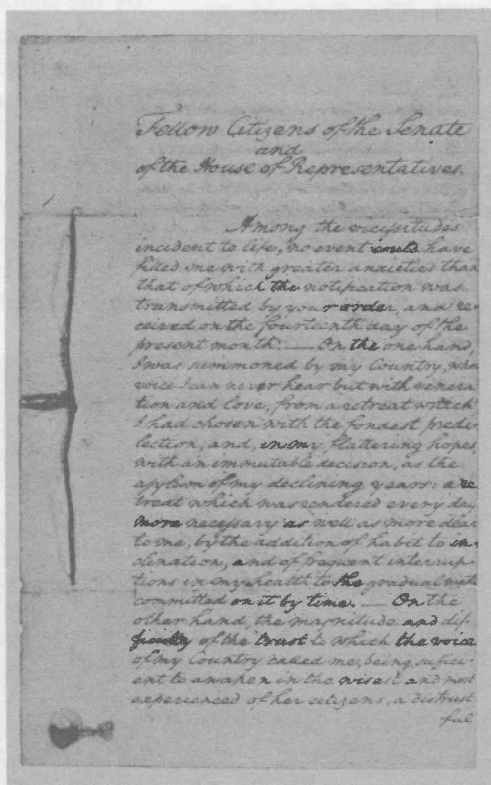 Fellow Citizens of the Senate
and
of the House of Representatives.
Among the vicissitudes
incident to life, no event could have
filled me with greater anxieties than
that of which the notification was
transmitted by your order, and re-
ceived on the fourteenth day of the
present month. — On the one hand,
I was summoned by my Country, whose
voice I can never hear but with venera-
tion and love, from a retreat which
I had chosen with the fondest predi-
lection, and, in my flattering hopes,
with an immutable decision, as the
asylum of my declining years: a re-
treat which was rendered every day
more necessary as well as more dear
to me, by the addition of habit to in-
clination, and of frequent interrup-
tions in my health to the gradual waste
committed on it by time. — On the
other hand, the magnitude and dif-
ficulty of the trust to which the voice
of my Country called me, being suffici-
ent to awaken in the wisest and most
experienced of her citizens, a distrust-
ful